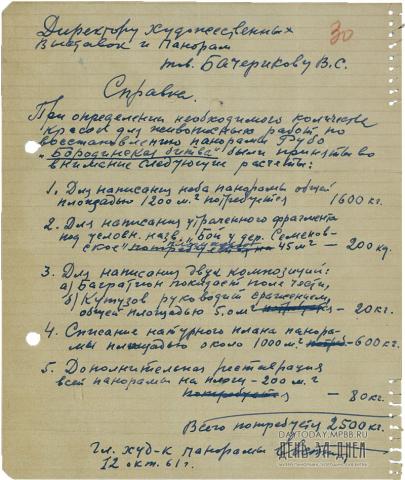 Директору художественных
выставок и панорам
тов. Бачерикову В.С.
30
Справка.
При определении необходимого количества
красок для живописных работ по
восстановлению панорамы Рубо
"Бородинская битва" были приняты во
внимание следующие расчеты:
1. Для написания неба панорамы общей
площадью 1200 м.² потребуется 1600 кг.
2. Для написания утраченного фрагмента
под условн. назв. "Бой у дер. Семенов-
ское" потребуется на 45 м² — 200 кг.
3. Для написания двух композиций:
а) Багратион покидает поле чести,
б) Кутузов руководит сражением,
общей площадью 5.0 м² — 20 кг.
4. Списание натурного плана панора-
мы площадью около 1000 м.² 600 кг.
5. Дополнительная реставрация
всей панорамы на площ. — 200 м.²
потребуется — 80 кг.
Всего потребуется 2500 кг.
Гл. худ-к панорамы
12 окт. 61 г.
DAYTODAY.MPBB.RU
ДЕНЬ ЗА ДНЕМ